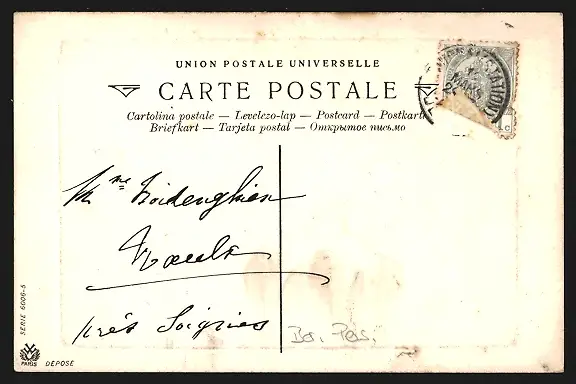 UNION POSTALE UNIVERSELLE
CARTE POSTALE
Cartolina postale — Levelezo-lap — Postcard — Postkarte
Briefkart — Tarjeta postal — Открытое письмо
(STATION)
1c
Mme
près Soignies
Bo. Pos.
SERIE 6006-5
PARIS DEPOSE